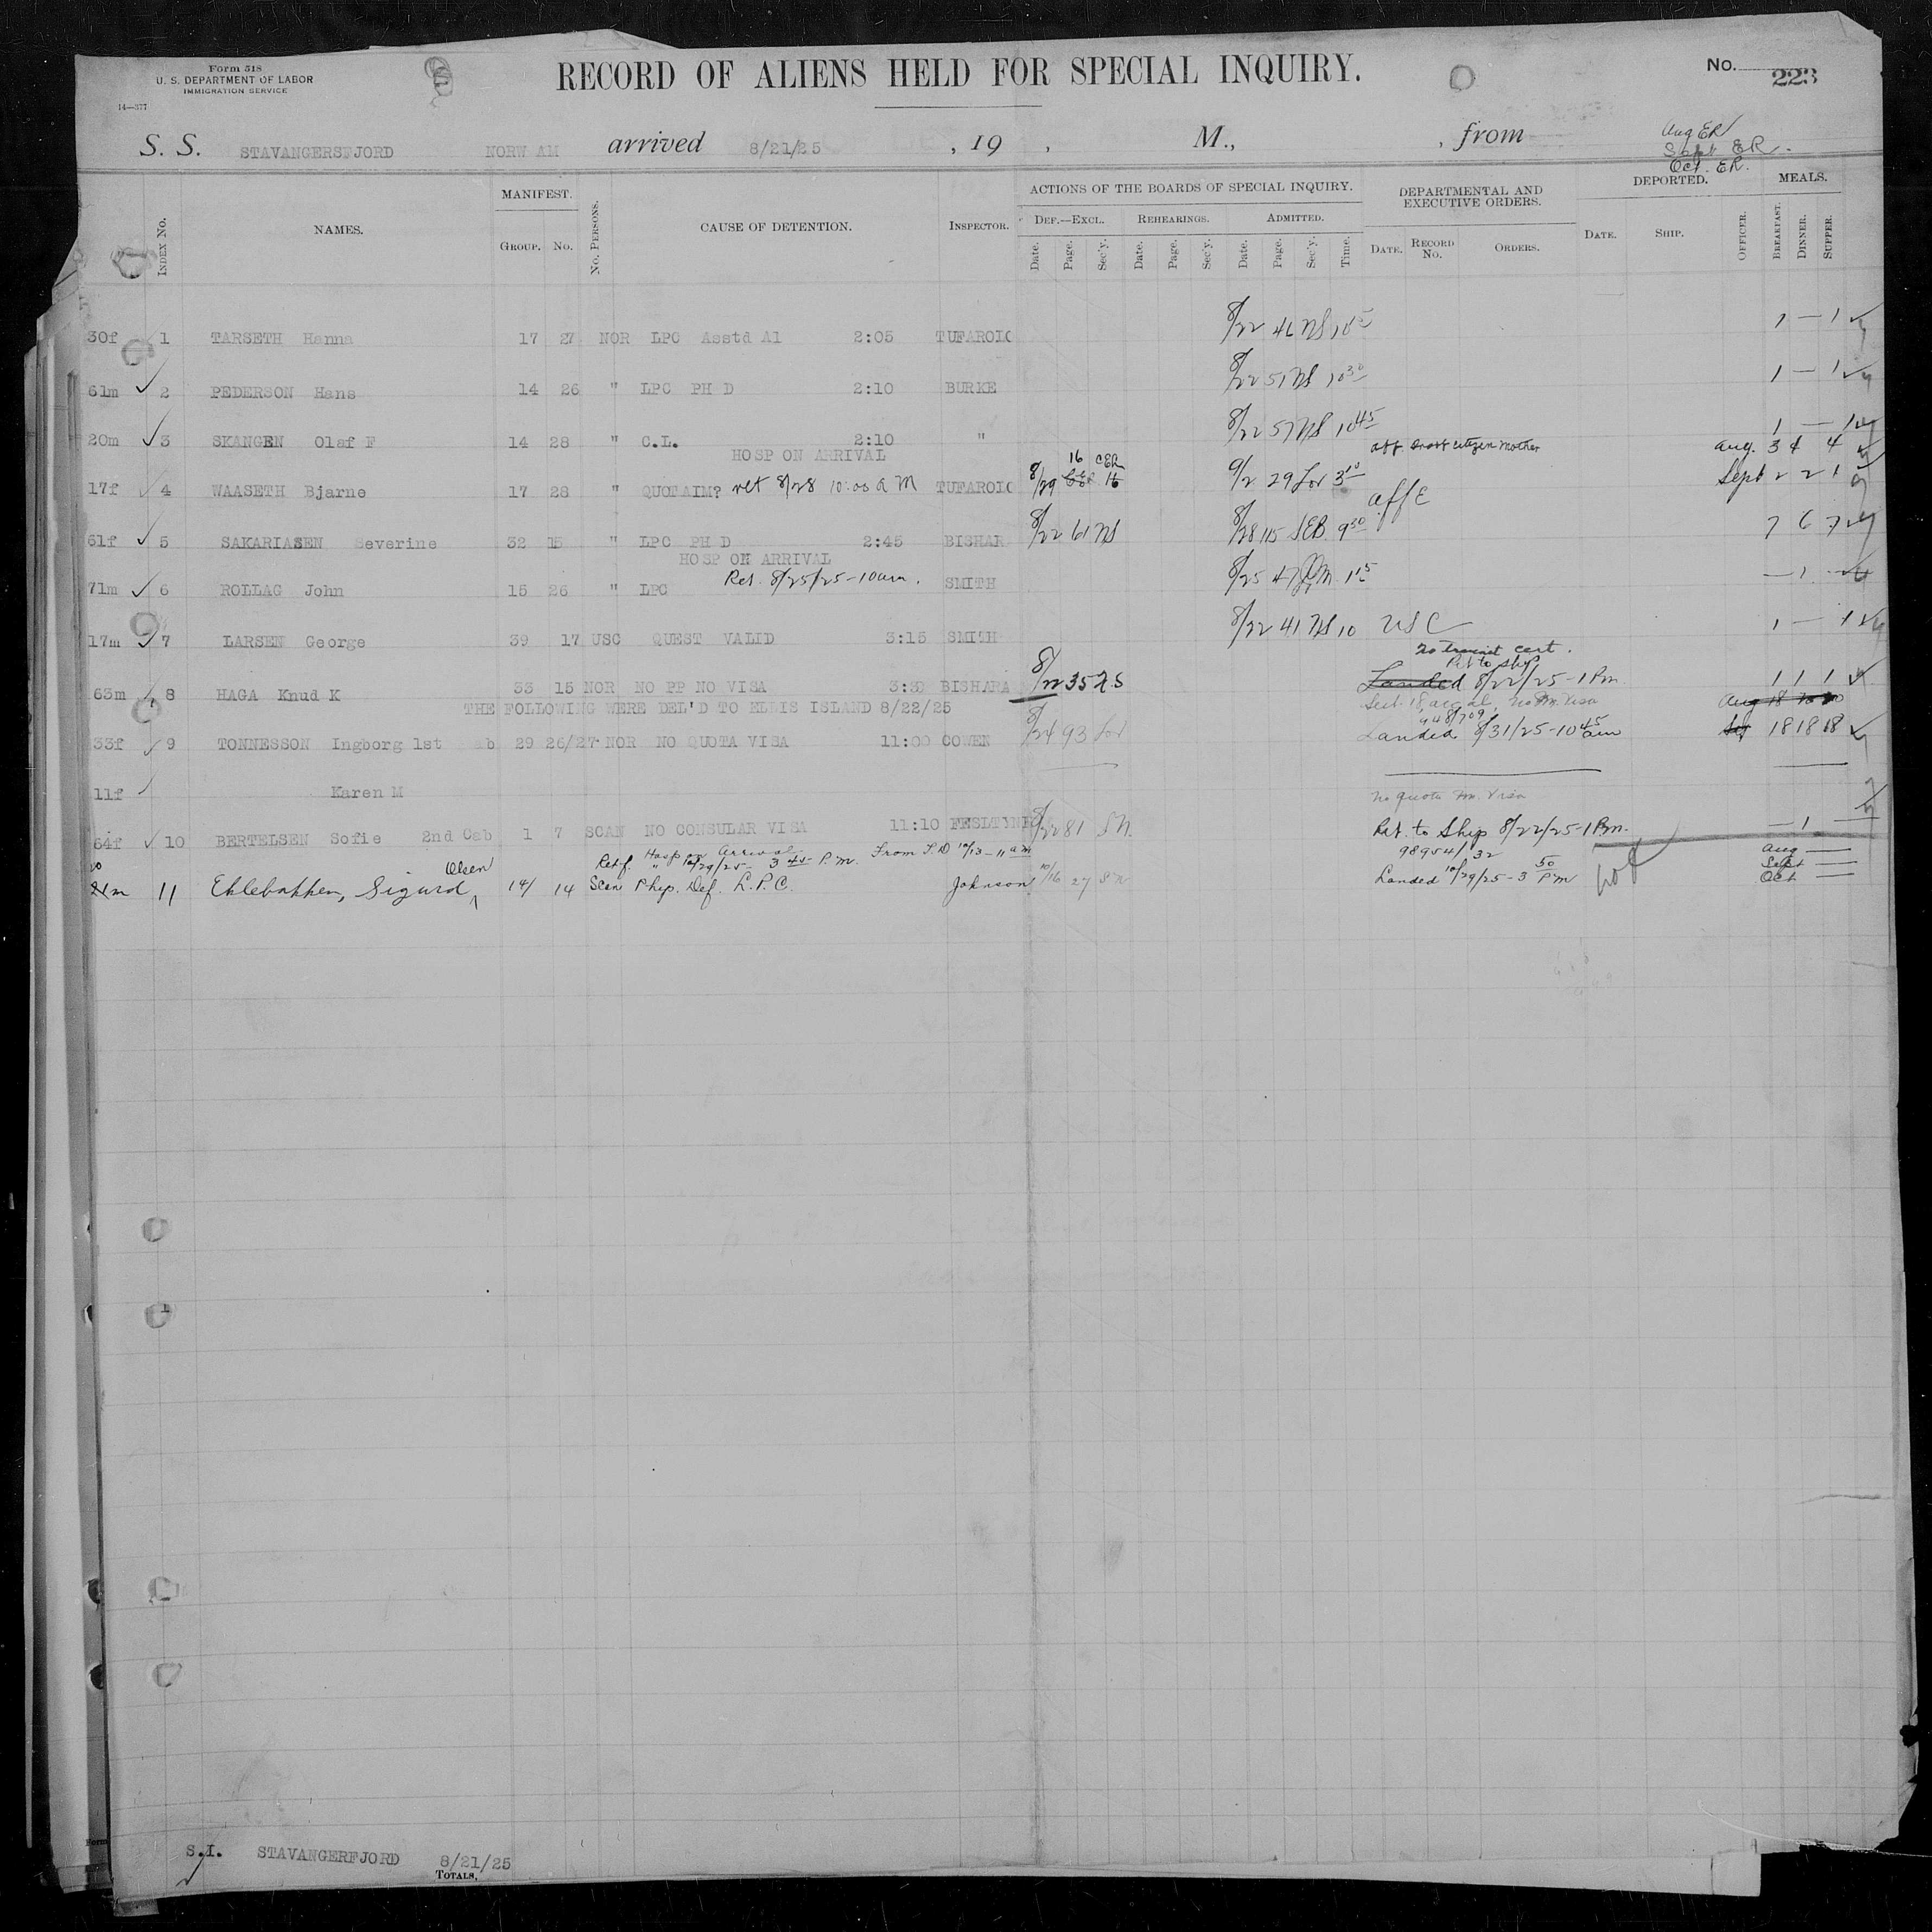 Form 518
U. S. DEPARTMENT OF LABOR
IMMIGRATION SERVICE
14—377
RECORD OF ALIENS HELD FOR SPECIAL INQUIRY.
No. 223
S. S. STAVANGERSFJORD NORW AM arrived 8/21/25 , 19 , M., , from
Aug ER
Sept ER.
Oct. ER.
INDEX NO. NAMES. MANIFEST. GROUP. NO. NO. PERSONS. CAUSE OF DETENTION. INSPECTOR. ACTIONS OF THE BOARDS OF SPECIAL INQUIRY. DEF.—EXCL. REHEARINGS. ADMITTED. DEPARTMENTAL AND EXECUTIVE ORDERS. DEPORTED. MEALS.
Date. Page. Sec'y. Date. Page. Sec'y. Date. Page. Sec'y. Time. DATE. RECORD NO. ORDERS. DATE. SHIP. OFFICER. BREAKFAST. DINNER. SUPPER.
30f 1 TARSETH Hanna 17 27 NOR LPC Asstd Al 2:05 TUFAROLO 8/22 46 NS 10 15 1 — 1
61m 2 PEDERSON Hans 14 26 " LPC PH D 2:10 BURKE 8/22 51 NS 10 30 1 — 1
20m 3 SKANGEN Olaf F 14 28 " C.L. 2:10 " 8/22 57 NS 10 45 1 — 1
HOSP ON ARRIVAL
16 CER
citizen mother
Aug. 3 4 4
17f 4 WAASETH Bjarne 17 28 " QUOTAIM? ret 8/28 10:00 AM TUFAROLO 8/29 16 9/2 29 Lor 3 10 Sept 2 2 1
aff E
61f 5 SAKARIASEN Severine 32 15 " LPC PH D 2:45 BISHAR 8/22 61 NS 8/28 115 SEB 9 30 7 6 7
HOSP ON ARRIVAL
Ret. 8/25/25-10am.
71m 6 ROLLAG John 15 26 " LPC SMITH 8/25 47 M 1 15 — 1 —
17m 7 LARSEN George 39 17 USC QUEST VALID 3:15 SMITH 8/22 41 NS 10 USC 1 — 1
no transit cert.
Ret to ship
63m 8 HAGA Knud K 33 15 NOR NO PP NO VISA 3:30 BISHARA 8/22 35 Landed 8/22/25-1 Pm. 1 1 1
THE FOLLOWING WERE DEL'D TO ELLIS ISLAND 8/22/25
33f 9 TONNESSON Ingborg 1st ab 29 26/27 NOR NO QUOTA VISA 11:00 COWEN 8/24 93 Lor Landed 8/31/25-10 45 am 18 18 18
11f Karen M
no quota Im. Visa
64f 10 BERTELSEN Sofie 2nd Cab 1 7 SCAN NO CONSULAR VISA 11:10 8/22 81 SN. Ret. to Ship 8/22/25-1 Pm. — 1 —
Hosp on Arrival
Ret'f. " 10/29/25- 3 45 P.M. From 10/13-11 am
98954/32
Aug —
Sept —
Oct. —
20 21m 11 Ehlebakken, Sigurd Olsen 14 14 Scan Phys. Def. L.P.C. Johnson 10/16 27 SN Landed 10/29/25-3 50 PM
S.I. STAVANGERFJORD 8/21/25
TOTALS,